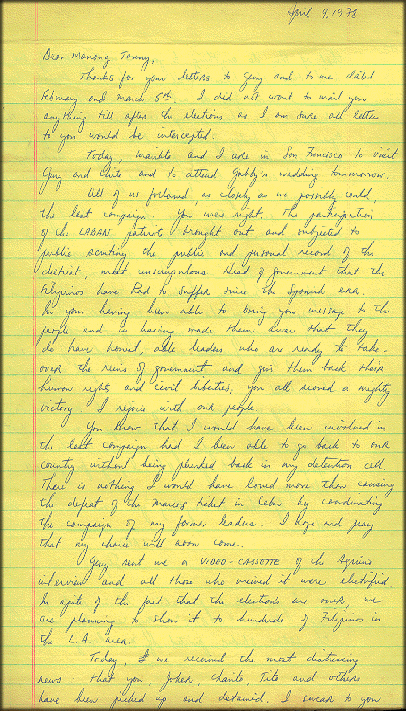 April 9, 1978
Dear Manong Tonny,
Thanks for your letters to Geny and to me dated
February and March 5th. I did not want to mail you
anything till after the elections as I am sure all letters
to you would be intercepted.
Today, and I are in San Francisco to visit
Geny and and to attend Gabby's wedding tomorrow.
All of us followed, as closely as we possibly could,
the last campaign. You were right. The participation
of the LABAN patriots brought out and subjected to
public scrutiny the public and personal record of the
cruelest, most unscrupulous Head of government that the
Filipinos have had to suffer since the Spanish era.
In your having been able to bring your message to the
people and in having made them aware that they
do have honest, able leaders who are ready to take-
over the reins of government and give them back their
human rights and civil liberties, you all scored a mighty
victory. I rejoice with our people.
You know that I would have been involved in
the last campaign had I been able to go back to our
country without being placed back in my detention cell.
There is nothing I would have loved more than causing
the defeat of the Marcos ticket in Cebu by coordinating
the campaign of my former leaders. I hope and pray
that my chance will soon come.
Geny sent me a VIDEO-CASSETTE of the Aquino
interview and all those who viewed it were electrified.
In spite of the fact that the elections are over, we
are planning to show it to hundreds of Filipinos in
the L.A. area.
Today, I received the most distressing
news that you, Joker, Charito, Tito and others
have been picked up and detained. I swear to you